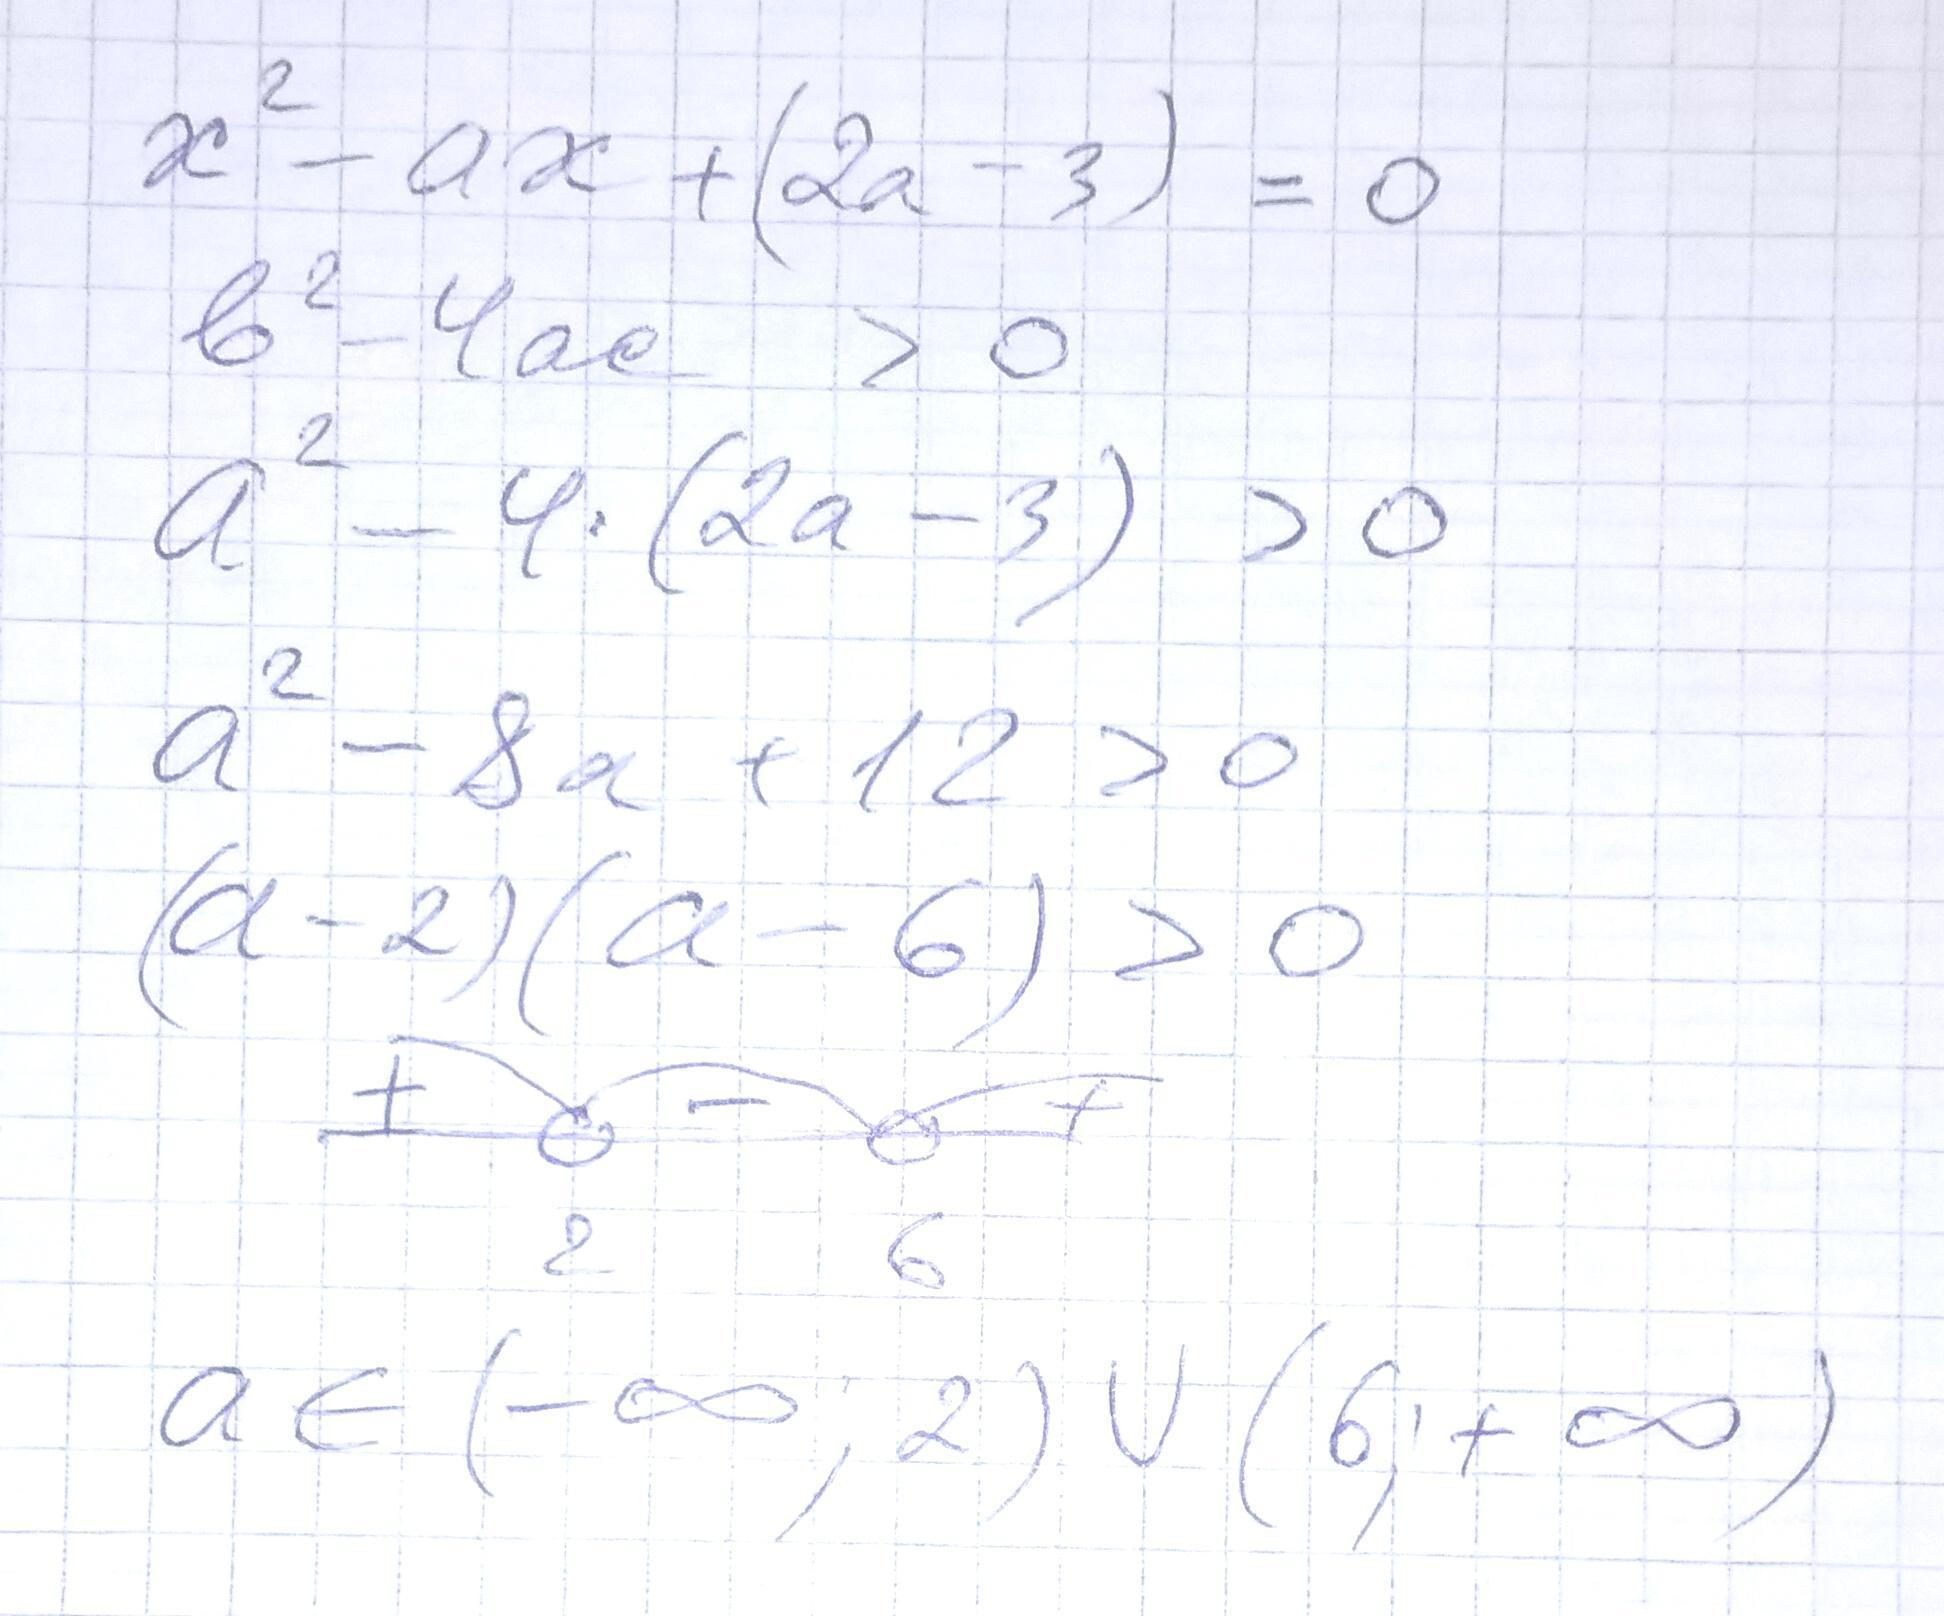 x² - ax + (2a - 3) = 0
b² - 4ac > 0
a² - 4·(2a - 3) > 0
a² - 8a + 12 > 0
(a - 2)(a - 6) > 0
+ - +
2 6
a ∈ (-∞; 2) ∪ (6; +∞)